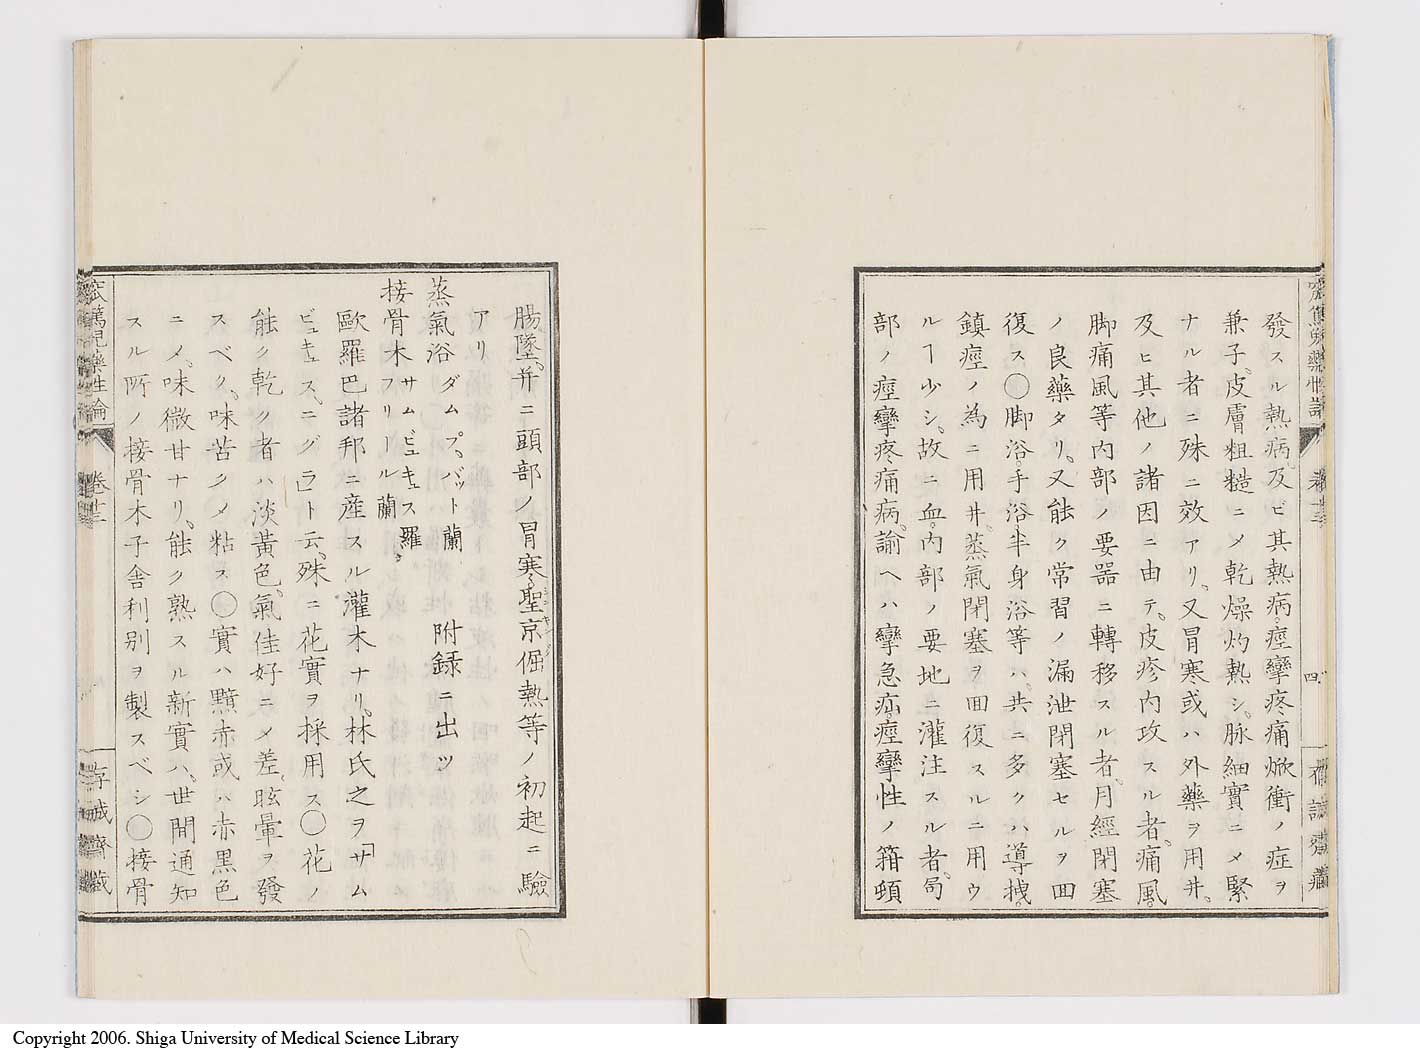 發スル熱病及ビ其熱病痙攣疼痛焮衝ノ症ヲ
兼子皮膚粗糙ニメ乾燥灼熱シ脉細實ニメ緊
ナル者ニ殊ニ效アリ又冒寒或ハ外藥ヲ用井
及ヒ其他ノ諸因ニ由テ皮疹內攻スル者痛風
脚痛風等內部ノ要器ニ轉移スル者月經閉塞
ノ良藥タリ又能ク常習ノ漏泄閉塞セルヲ囬
復ス〇脚浴手浴半身浴等ハ共ニ多クハ導㧞
鎮痙ノ為ニ用井蒸氣閉塞ヲ囬復スルニ用ウ
ルヿ少シ故ニ血內部ノ要地ニ灌注スル者局
部ノ痙攣疼痛病諭ヘハ攣急疝痙攣性ノ箝頓
四
腸墜并ニ頭部ノ冒寒聖京倔熱等ノ初起ニ驗
アリ
蒸氣浴 ダムプバット蘭 附録ニ出ツ
接骨木 サムビュキュス羅 フリール蘭
歐羅巴諸邦ニ產スル灌木ナリ林氏之ヲ「サム
ビュキュスニグラ」ト云殊ニ花實ヲ採用ス〇花ノ
能ク乾ク者ハ淡黃色氣佳好ニメ差眩暈ヲ發
スベク味苦クメ粘ス〇實ハ黯赤或ハ赤黑色
ニメ味微甘ナリ能ク熟スル新實ハ世間通知
スル所ノ接骨木子舎利别ヲ製スベシ〇接骨
窊篤兒藥性論 卷十三
存誠齋藏